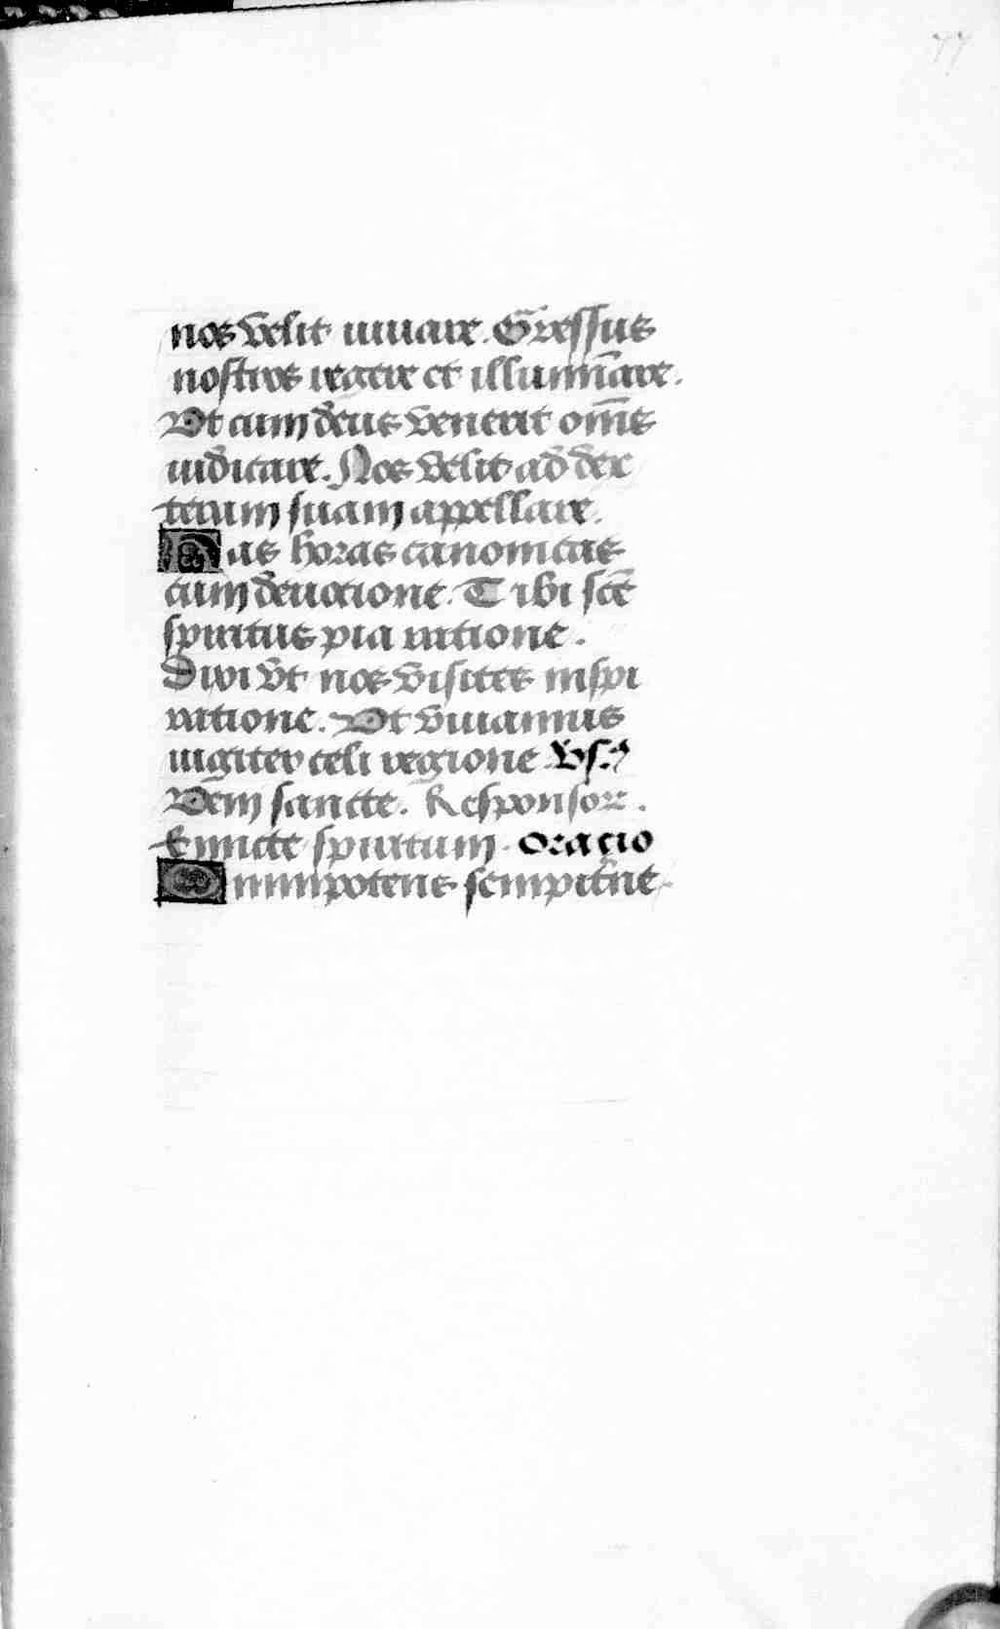 77
nos velit iuuare. Gressus
nostros regere et illumīare.
Vt cum deus venerit om̄s
iudicare. Nos velit ad dex
teram suam appellare.
Has horas canonicas
cum deuotione. Tibi sc̄e
spiritus pia ratione.
Dixi vt nos visites inspi
ratione. Vt viuamus
iugiter celi regione vs.
Veni sancte. Responsor.
Emitte spiritum. Oracio
Omnipotens sempit̄ne